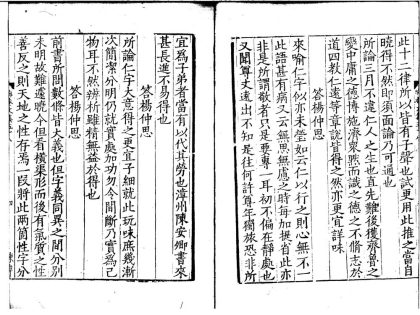 此十二律所以皆有子聲也試更用此推之當自
曉得不然即須面論乃可通也
所論三月不違仁人之生也直先難後獲齊魯之
變中庸之德博施濟衆默而識之德之不脩志於
道四教仁遠等章說皆得之然亦更宜詳味
答楊仲思
來喻仁字似亦未瑩如云仁以行之則心無不一
此語甚有病又云無思無慮之時每加提省此亦
非是所謂敬者只是要專一耳初不偏在靜處也
又聞尊丈遠出不知是往何許尊年獨旅恐非所
宜爲子弟者當有以代其勞也漳州陳安卿書來
甚長進不易得也
答楊仲思
所論仁字大意得之更宜子細就此玩味庶幾漸
次簡潔分明仍就實處加功勿令間斷乃實爲己
物耳不然辨析雖精無益於得也
答楊仲思
前書所問數條皆大義也但字義同異之間分別
未明故難遽曉今但看橫渠形而後有氣質之性
善反之則天地之性存焉一段將此兩箇性字分